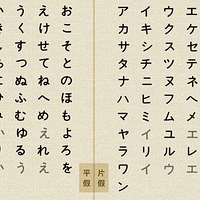 エケセテネヘメエレエ
ウクスツヌフムユルウ
イキシチニヒミイリイ
アカサタナハマヤラワン
片假
平假
おこそとのほもよろを
えけせてねへめえれえ
うくすつぬふむゆるう